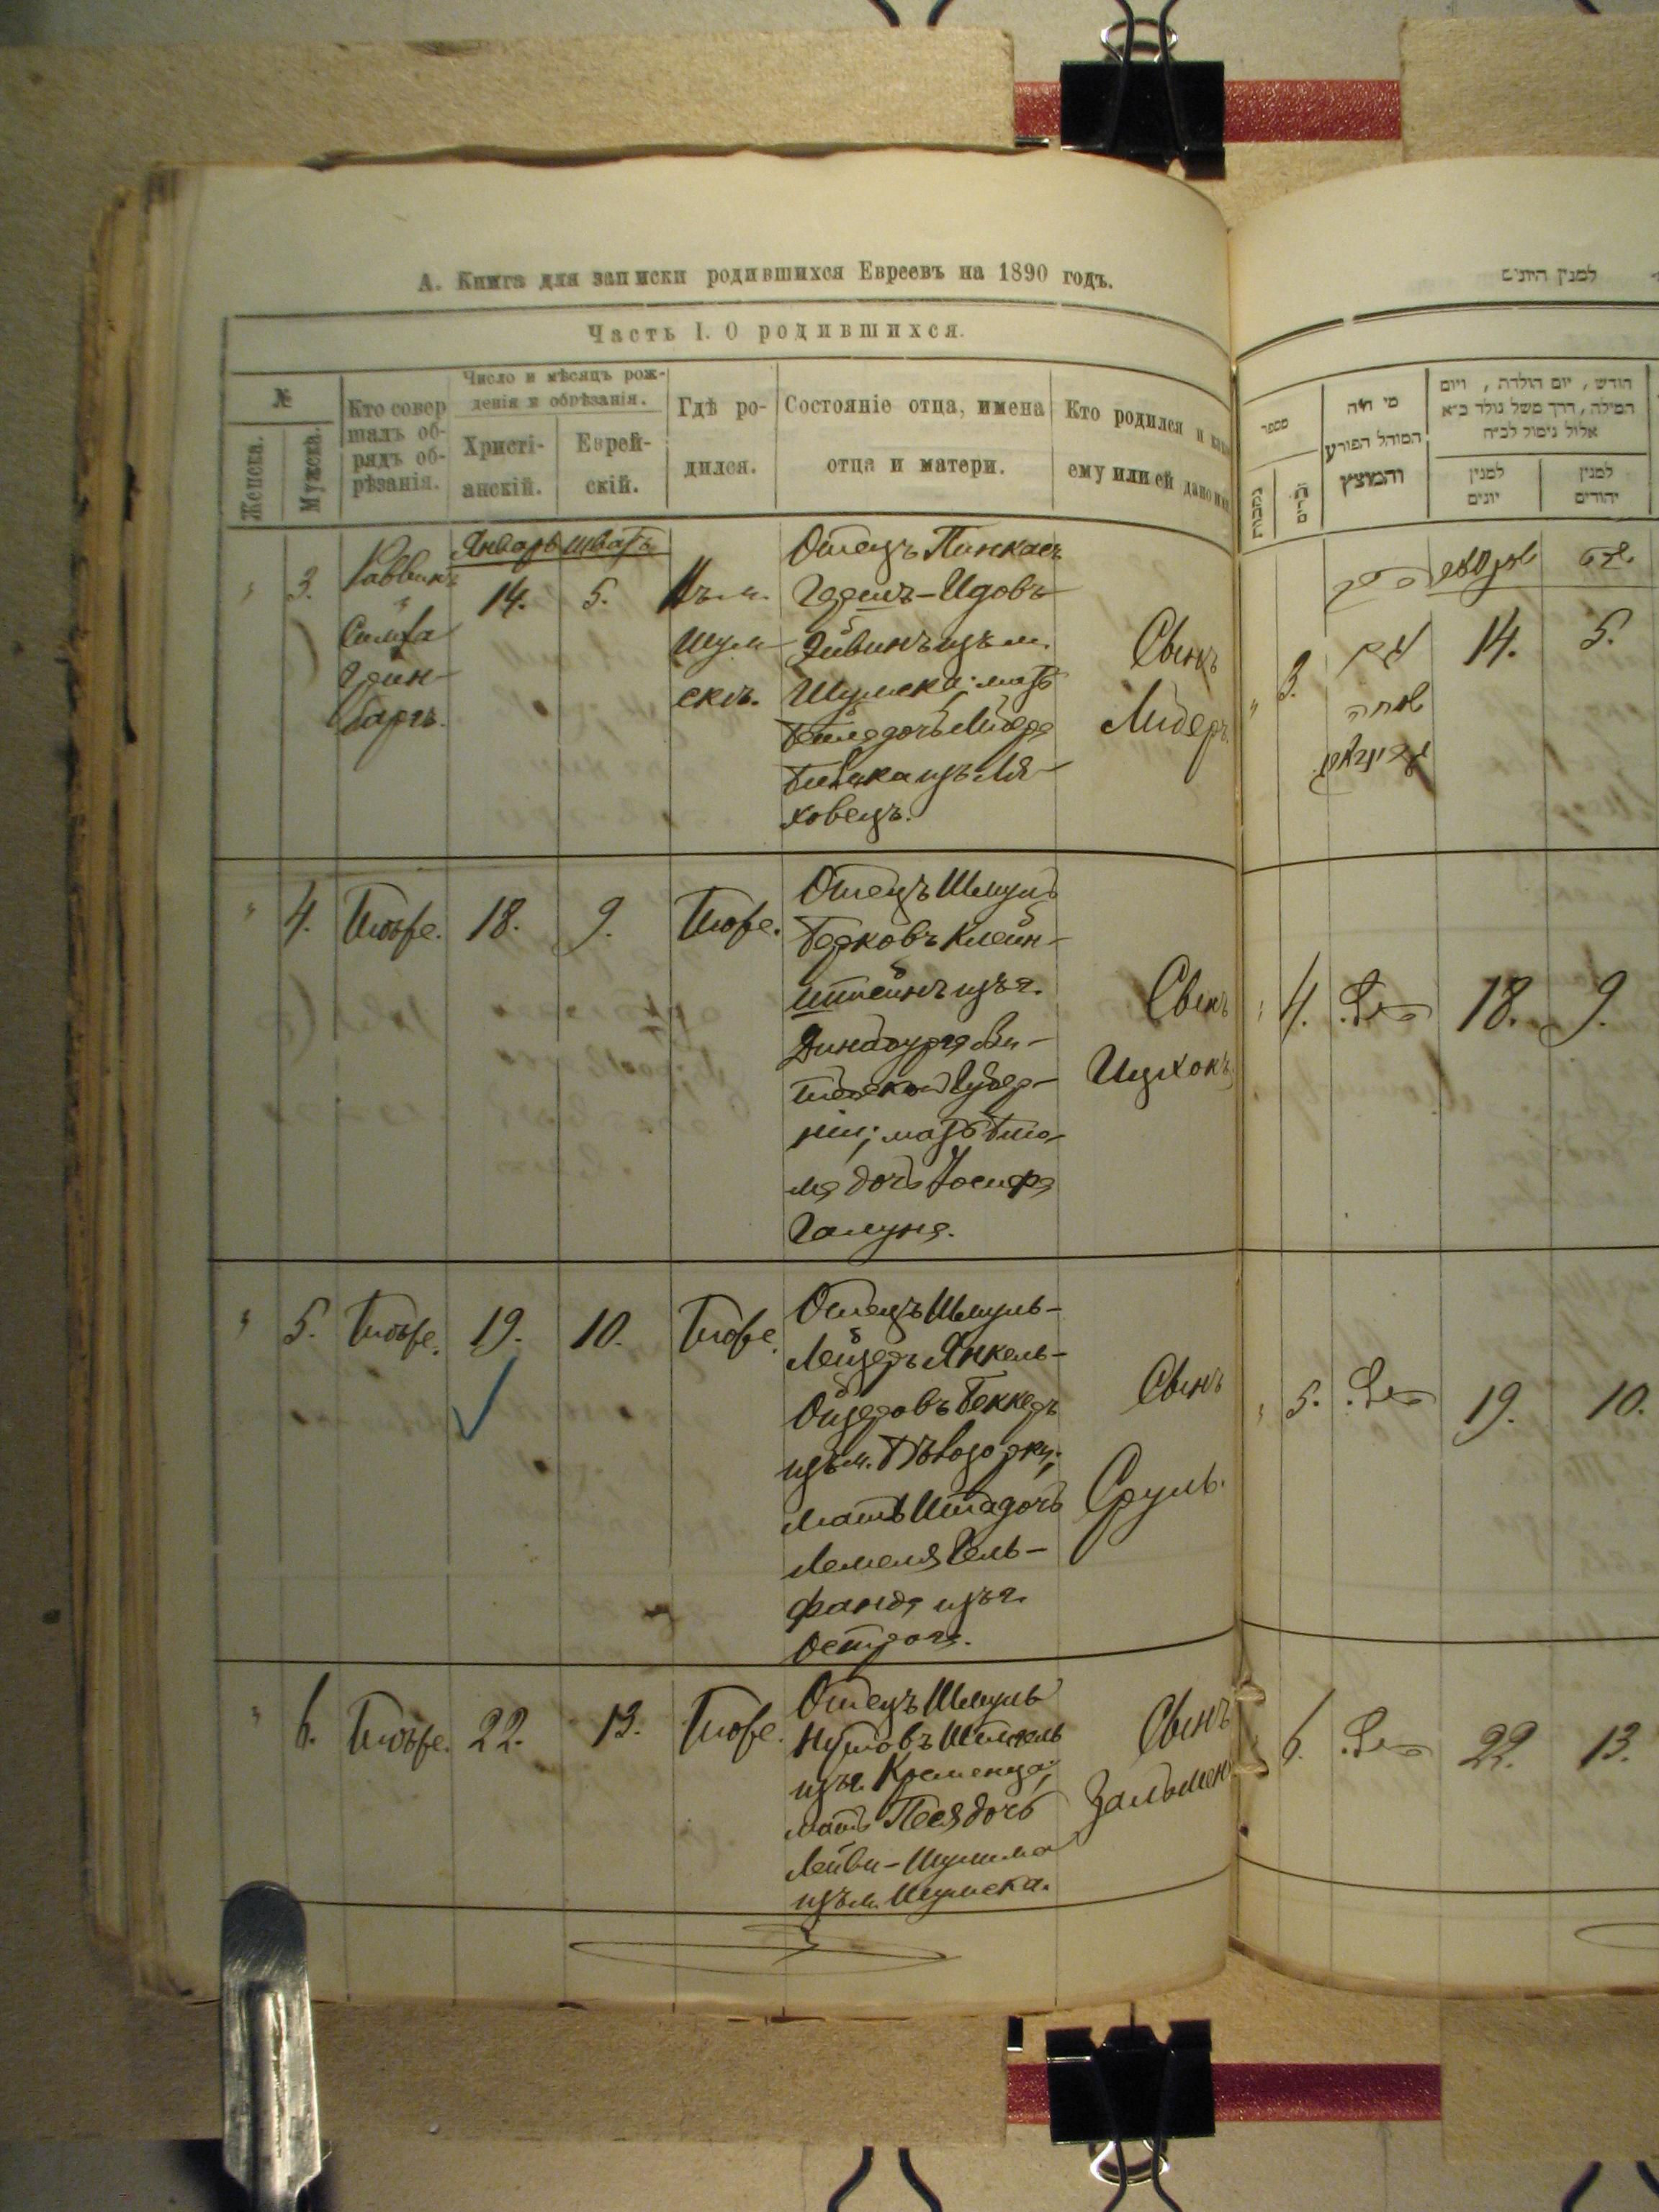 А. Книга для записки родившихся Евреевъ на 1890 годъ.
Часть I. О родившихся.
№
Женска.
Мужска.
Кто совер
шалъ об-
рядъ об-
рѣзанія.
Число и мѣсяцъ рож-
денія и обрѣзанія.
Христі-
анскій.
Еврей-
скій.
Гдѣ ро-
дился.
Состояніе отца, имена
отца и матери.
Кто родился и
ему или ей дано
Январь Шватъ
3.
Раввинъ
Симха
Грин-
бергъ.
14.
5.
Въ м.
Шум-
скѣ.
Отецъ Пинкасъ
Гершъ-Идовъ
Эйвинъ изъ м.
Шумска; мать
Бейла дочь Лидера
изъ Ля-
ховецъ.
Сынъ
Лидеръ.
4.
Тоже.
18.
9.
Тоже.
Отецъ Шмуль
Берковъ Клейн-
штейнъ изъ г.
Динабурга Ви-
тебской Губер-
ніи; мать Блю-
ма дочь Іосифа
Галуна.
Сынъ
Ицхокъ
5.
Тоже.
19.
10.
Тоже.
Отецъ Шмуль-
Лейзеръ Янкель-
Ойзеровъ Беккеръ
изъ м. Бѣлозорки;
мать Ита дочь
Лемеля Гель-
фанда изъ г.
Острога.
Сынъ
Сруль.
6.
Тоже.
22.
13.
Тоже.
Отецъ Шмуль
Нутовъ
изъ г. Кременца;
мать Песя дочь
Лейви-Шулима
изъ м. Шумска.
Сынъ
Зальмен
למנין היונים
מספר
נקבות
זכרים
מי היה
המוהל הפורע
והמוצץ
חודש, יום הולדת, ויום
המילה, דרך משל נולד כ״א
אלול נימול לכ״ח
למנין
יונים
למנין
יהודים
שבט
3.
הרב
שמחה
גרינבערג
14.
5.
4.
18.
9.
5.
19.
10.
6.
22.
13.